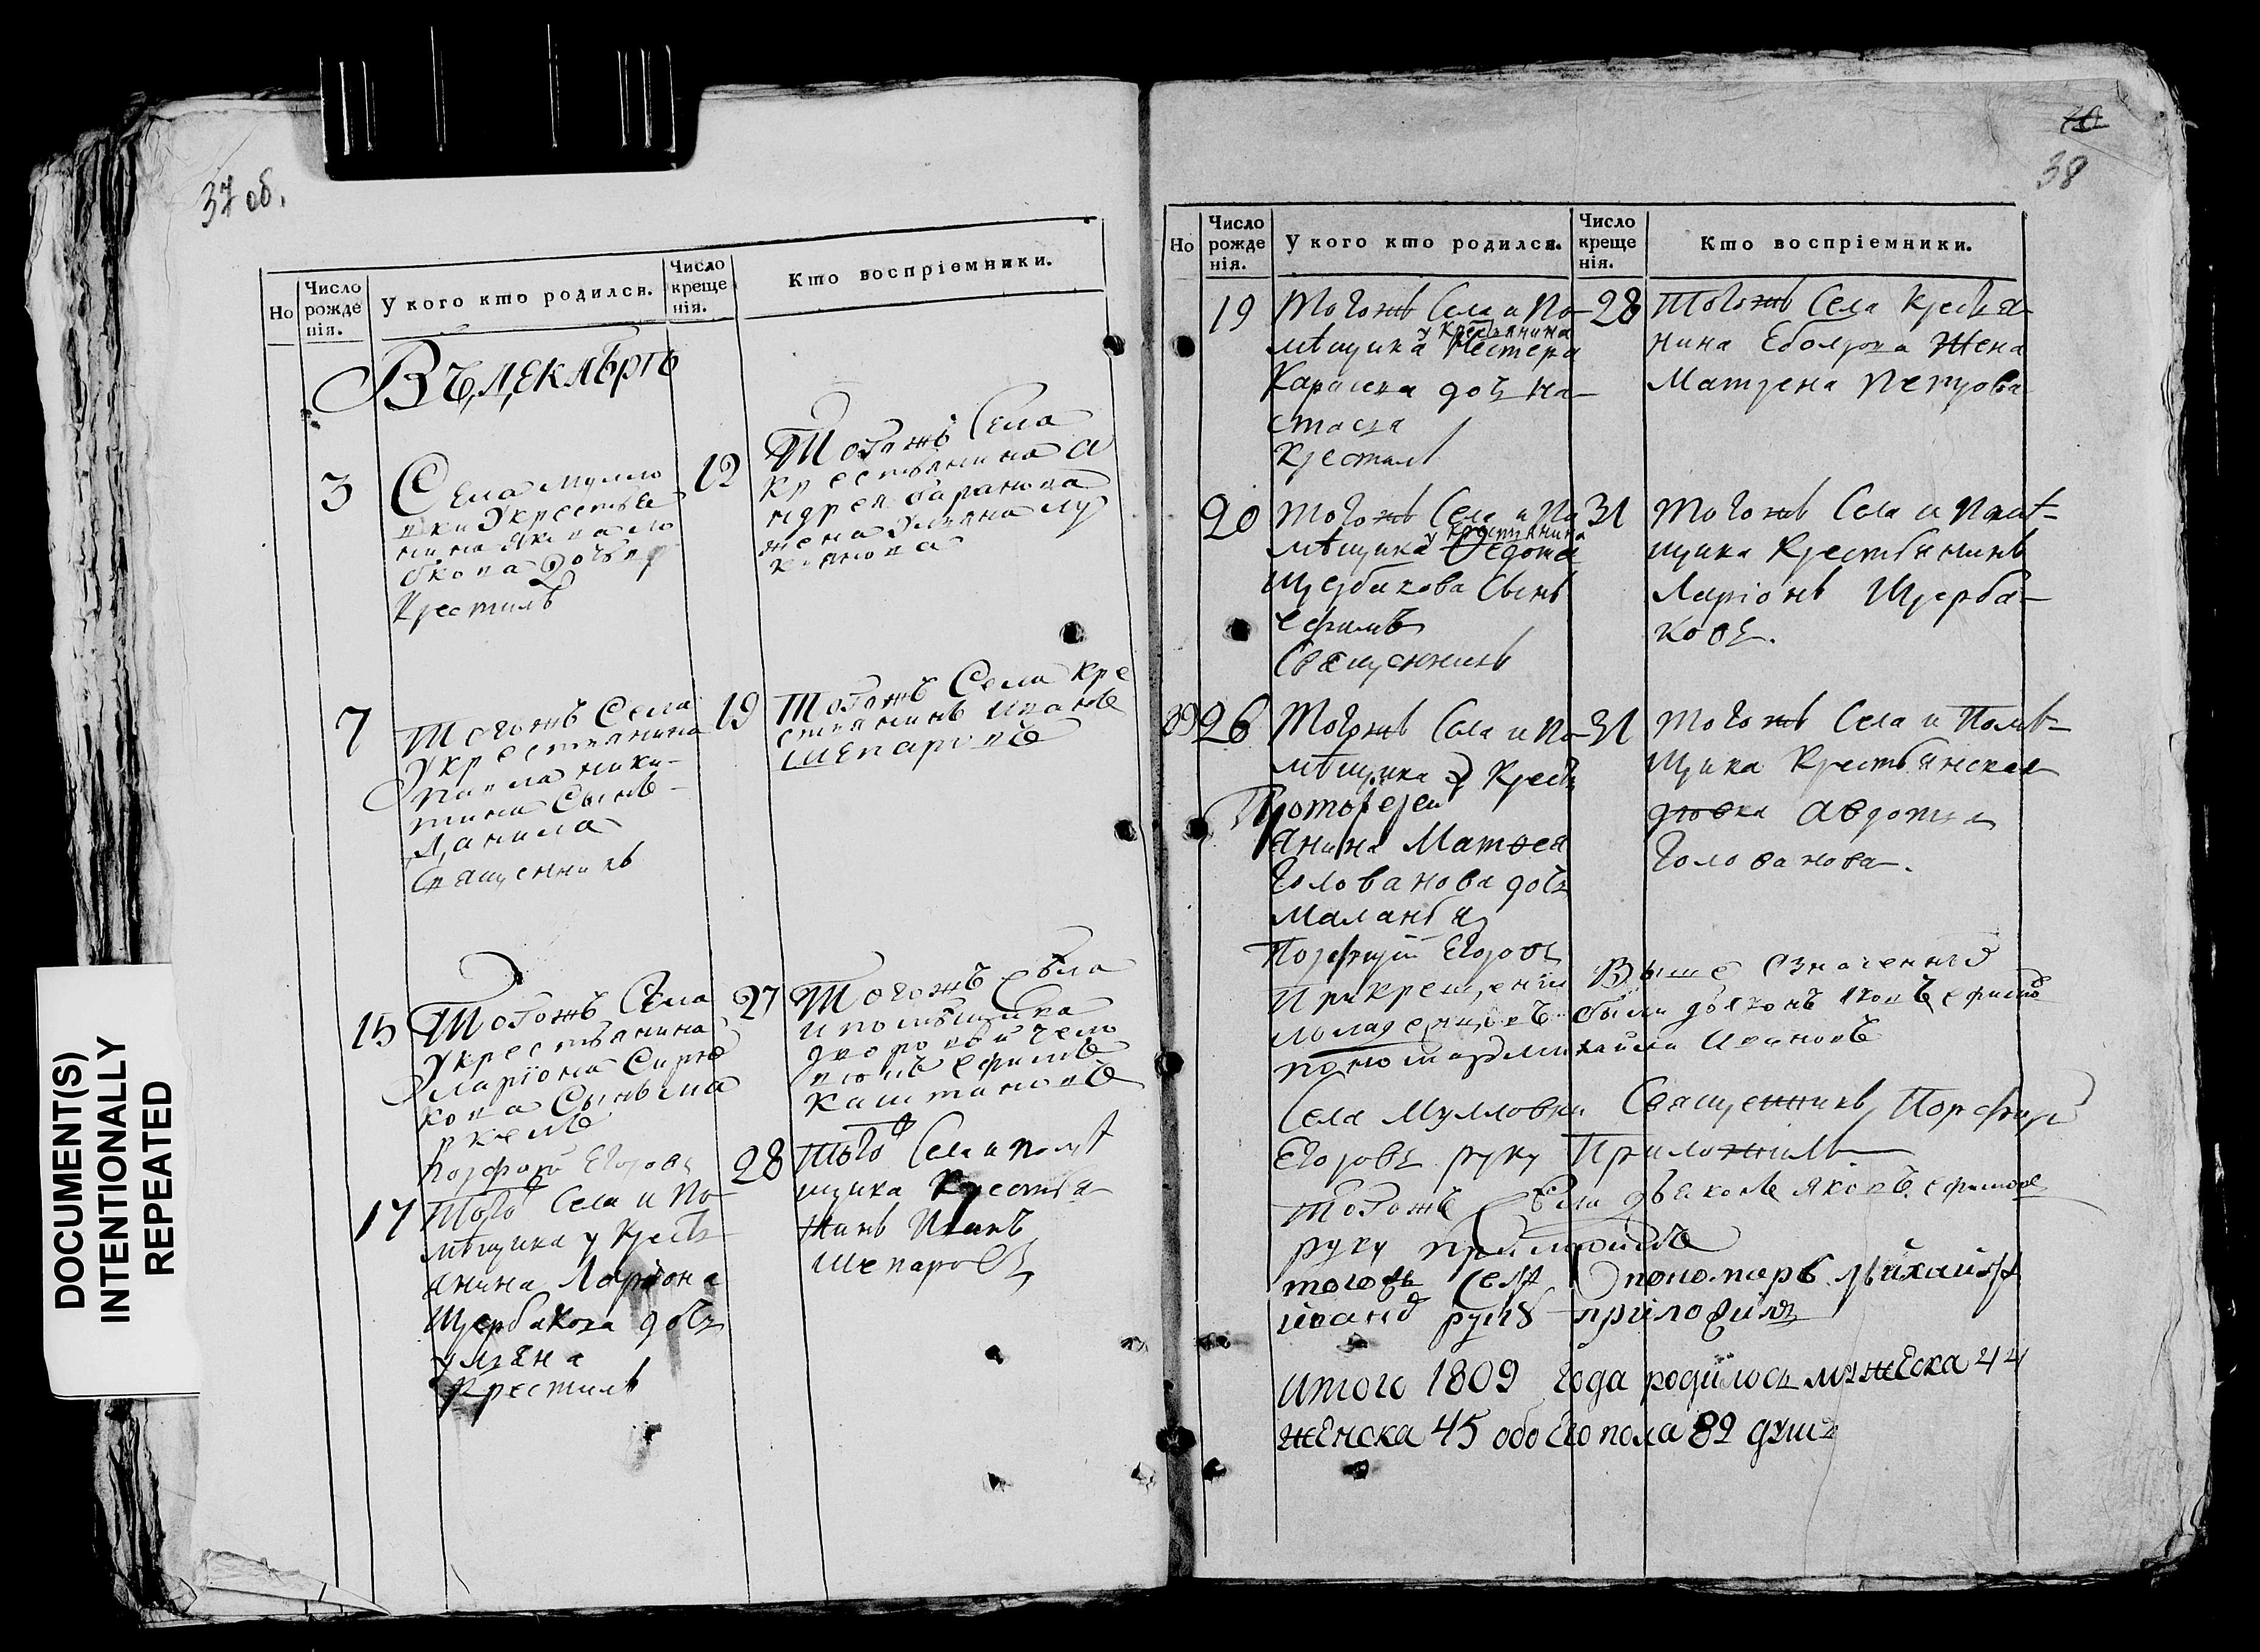 37 об.
Но
Число рожденія.
У кого кто родился.
Число крещенія.
Кто воспріемники.
Въ декабрѣ
3
Села Мулло
вки у крестья
нина Якова
дочь
Крестилъ
12
Тогожъ Села
крестьянина А
ндрея баранова
жена Улияна лу
кянова
7
Тогожъ Села
у крестьянина
павла ники-
тина Сынъ
Данила
Священникъ
19
Тогожъ Села кре
стьянинъ иванъ
шепаровъ
15
Тогожъ Села
у крестьянина
ларiона
кова Сынъ
Порфирiй Егоровъ
27
Тогожъ села
и помѣщика
дворовой чело
вѣкъ ефимъ
каштановъ
17
Того Села и По-
мѣщика у Кресть
янина Ларiона
Щербакова дочь
ульяна
Крестилъ
28
Того Села и помѣ
щика Крестья
нинъ Иванъ
Шепаровъ
70
38
Но
Число рожденія.
У кого кто родился.
Число крещенія.
Кто воспріемники.
19
Тогожъ Села и По-
у Крестьянина
мѣщика Нестера
Карасева дочь На-
стасья
Крестилъ
28
Тогожъ Села крестья
нина Жена
Матрена Петрова
20
Тогожъ Села и По
у крестьянина
мѣщика Федота
Щербакова Сынъ
ефимъ
Священникъ
31
Тогожъ Села и Помѣ-
щика Крестьянинъ
Ларiонъ Щерба-
ковъ.
26
Тогожъ Села и По-
мѣщика у Кресть
Протоiерей
янина Матвея
Голованова дочь
Маланья
Порфирiй Егоровъ
31
Тогожъ Села и Помѣ-
щика Крестьянская
дѣвка Авдотья
Голованова.
При крещенiи Выше означенныхъ
младенцовъ были дьяконъ Яковъ ефимовъ
пономарь михайла Ивановъ
Села Мулловки Священникъ Порфирiй
Егоровъ руку Приложилъ
Тогожъ Села дьяконъ яковъ ефимовъ
руку приложилъ
тогожъ села пономарь михайла
иванов руку приложилъ
Итого 1809 года родилось мужеска 44
женска 45 обоего пола 89 душъ
DOCUMENT(S)
INTENTIONALLY
REPEATED